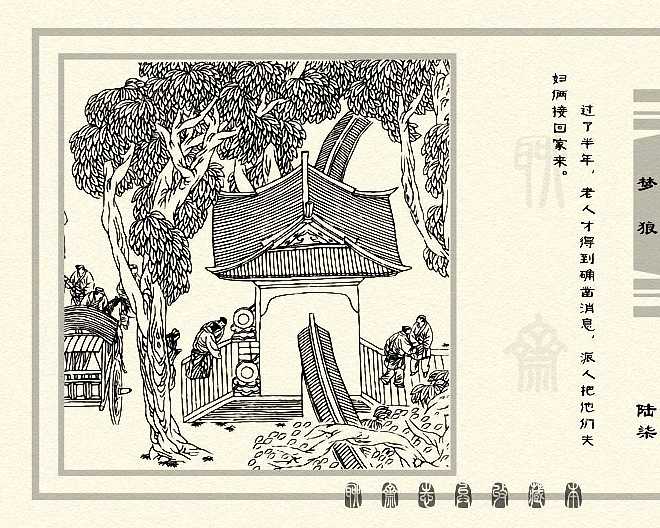 过了半年，老人才得到确凿消息，派人把他们夫
妇俩接回家来。
梦狼
陆柒